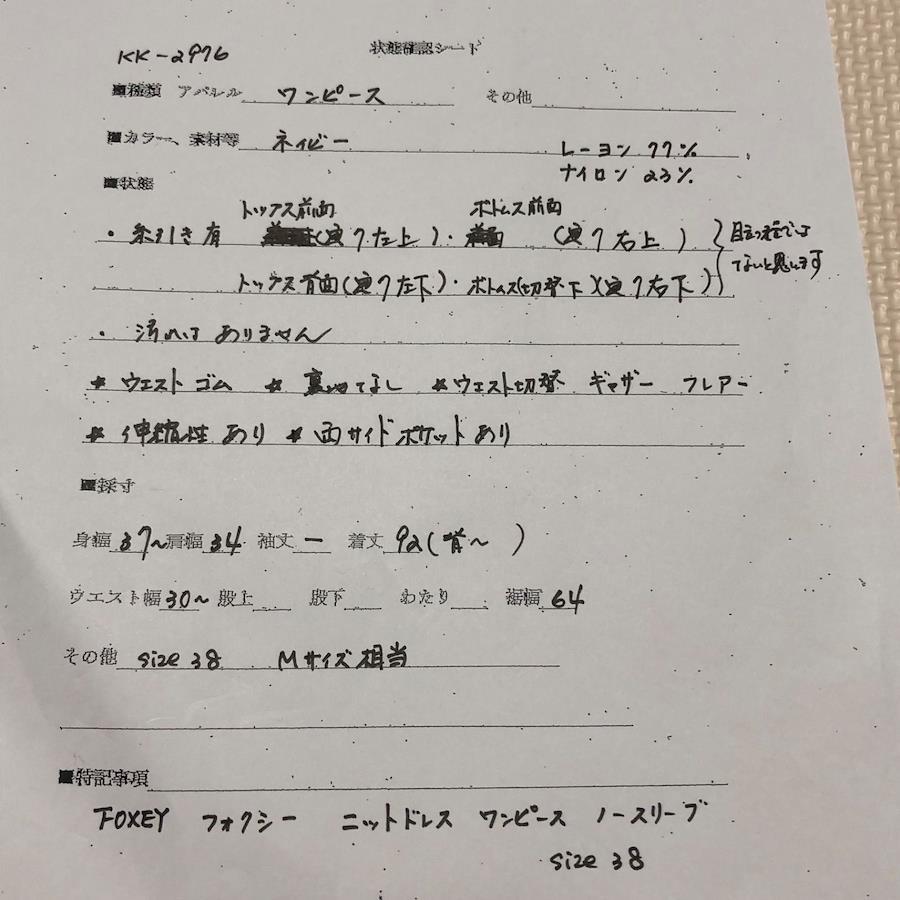 KK-2976 状態確認シート
■種類 アパレル ワンピース その他
■カラー、素材等 ネイビー レーヨン 77%
ナイロン 23%
■状態
トップス前面 ボトムス前面
・糸引き有 (寅7左上)・ (寅7右上) 目立つ程では
ないと思います
トップス前面(寅7左下)・ボトムス(切替下)(寅7右下)
・汚れはありません
* ウエストゴム * 裏地なし * ウエスト切替 ギャザー フレアー
* 伸縮性あり * 両サイドポケットあり
■採寸
身幅 37〜 肩幅 34 袖丈 ー 着丈 92(背〜 )
ウエスト幅 30〜 股上 股下 わたり 裾幅 64
その他 size 38 Mサイズ相当
■特記事項
FOXEY フォクシー ニットドレス ワンピース ノースリーブ
size 38